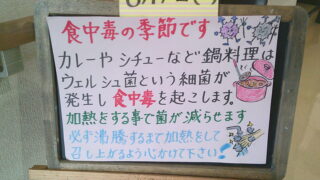 食中毒の季節です
カレーやシチューなど鍋料理は
ウェルシュ菌という細菌が
発生し食中毒を起こします。
加熱をする事で菌が減らせます
必ず沸騰するまで加熱をして
召し上がるよう心がけて下さい!